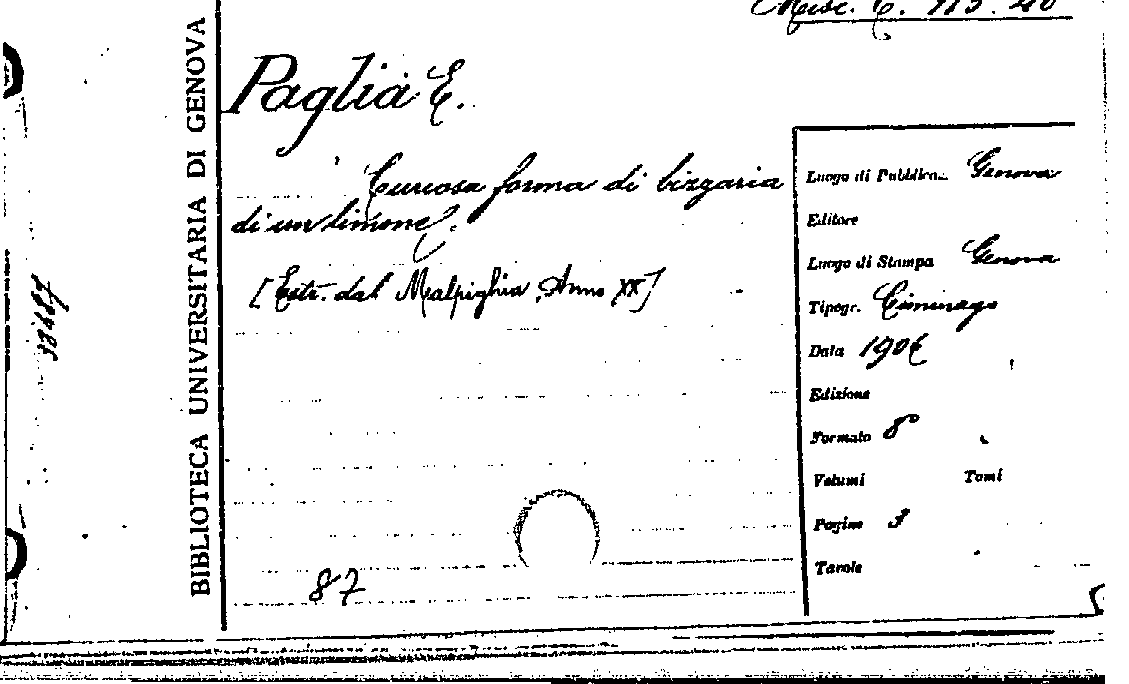 Misc. C. 113. 40
BIBLIOTECA UNIVERSITARIA DI GENOVA
Paglia E.
Curiosa forma di bizzaria
di un limone.
[Estr. dal Malpighia, Anno XX]
87
Luogo di Pubblica... Genova
Editore
Luogo di Stampa Genova
Tipogr. Ciminago
Data 1906
Edizione
Formato 8°
Volumi Tomi
Pagine 3
Tavole